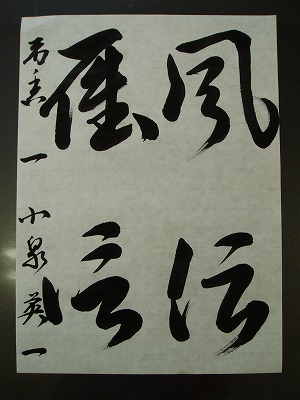 風伝
雁信
一 小泉英一